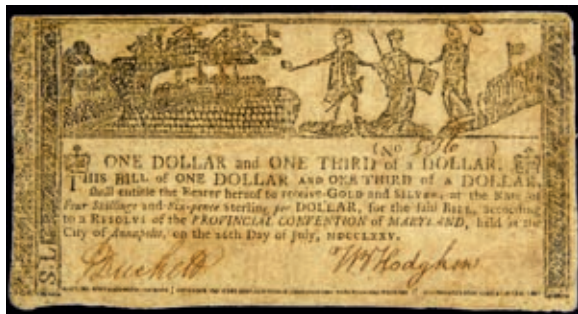 (No 596 )
ONE DOLLAR and ONE THIRD of a DOLLAR.
THIS BILL of ONE DOLLAR AND ONE THIRD of A DOLLAR,
shall entitle the Bearer hereof to receive GOLD and SILVER, at the Rate of
Four Shillings and Six-pence sterling per DOLLAR, for the said BILL, according
to a RESOLVE of the PROVINCIAL CONVENTION of MARYLAND, held at the
City of Annapolis, on the 26th Day of July, MDCCLXXV.
Duckett Hodgkin